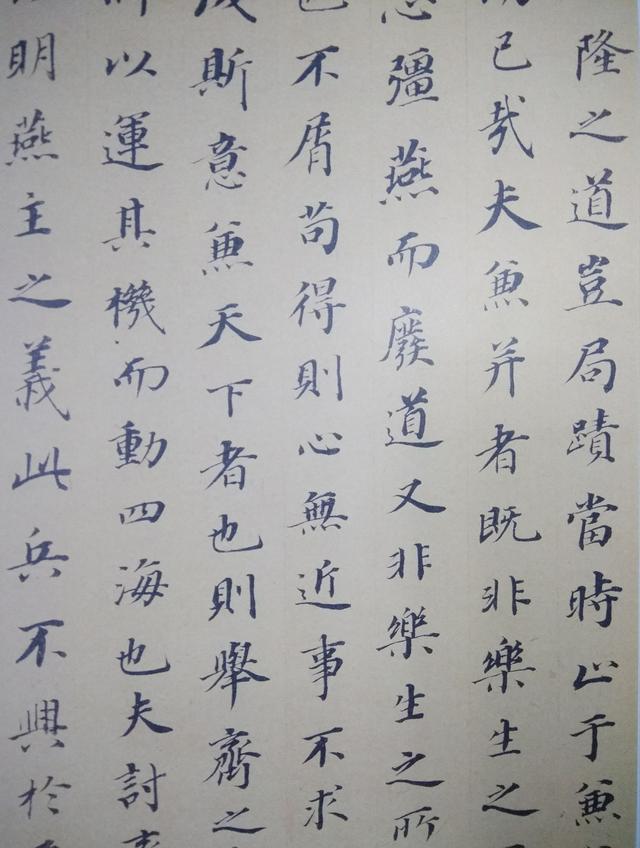 隆之道豈局蹟當時止于兼
已哉夫兼并者既非樂生之
心彊燕而廢道又非樂生之所
也不屑茍得則心無近事不求
成斯意兼天下者也則舉齊之
所以運其機而動四海也夫討
明燕主之義此兵不興於